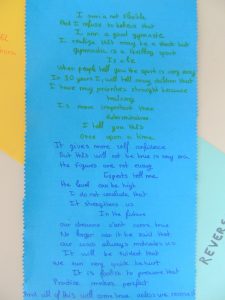 I am not flexible
And I refuse to believe that
I am a good gymnastic
I realize this may be a shock but
gymnastic is a healthy sport
Is a lie
When people tell you the sport is very easy
In 30 years I will tell my children that
I have my priorities straight because
training
Is more important than
determination
I tell you this
Once upon a time
It gives more self confidence
But this will not be true in my era
the figures are not easy
Experts tell me
the level can be high
I do not conclude that
It strengthens us
In the future
our dreams can't come true
No longer can it be said that
our coach always motivates us
It will be evident that
we can very quickly be hurt
It is foolish to presume that
Practice makes perfect
And all of this will come true unless we reverse it
REVERS